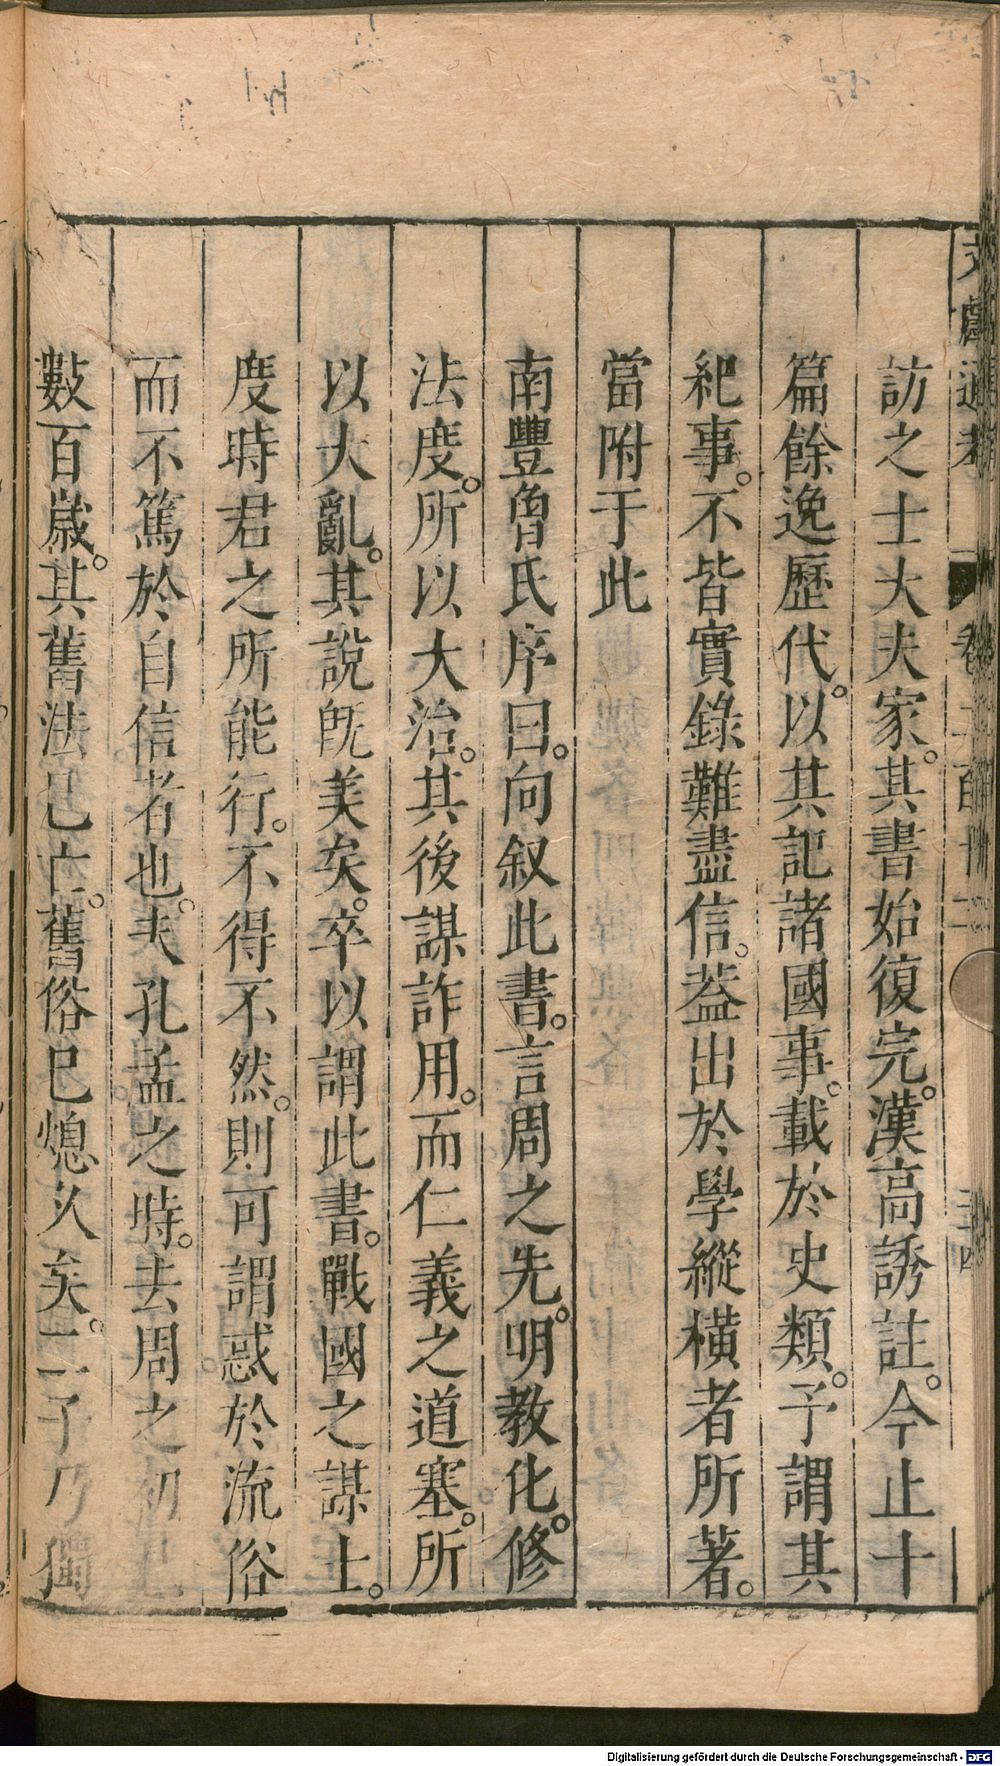 文獻通考 卷二百十二 三四
訪之士大夫家。其書始復完。漢高誘註。今止十
篇餘逸歷代。以其記諸國事。載於史類。予謂其
紀事。不皆實錄難盡信。葢出於學縱橫者所著。
當附于此
南豐曾氏序曰。向叙此書。言周之先。明教化。修
法度。所以大治。其後謀詐用。而仁義之道塞。所
以大亂。其說旣美矣。卒以謂此書。戰國之謀士。
度時君之所能行。不得不然。則可謂惑於流俗
而不篤於自信者也。夫孔孟之時。去周之初
數百歲。其舊法已亡。舊俗已熄久矣。二子乃獨
Digitalisierung gefördert durch die Deutsche Forschungsgemeinschaft - DFG